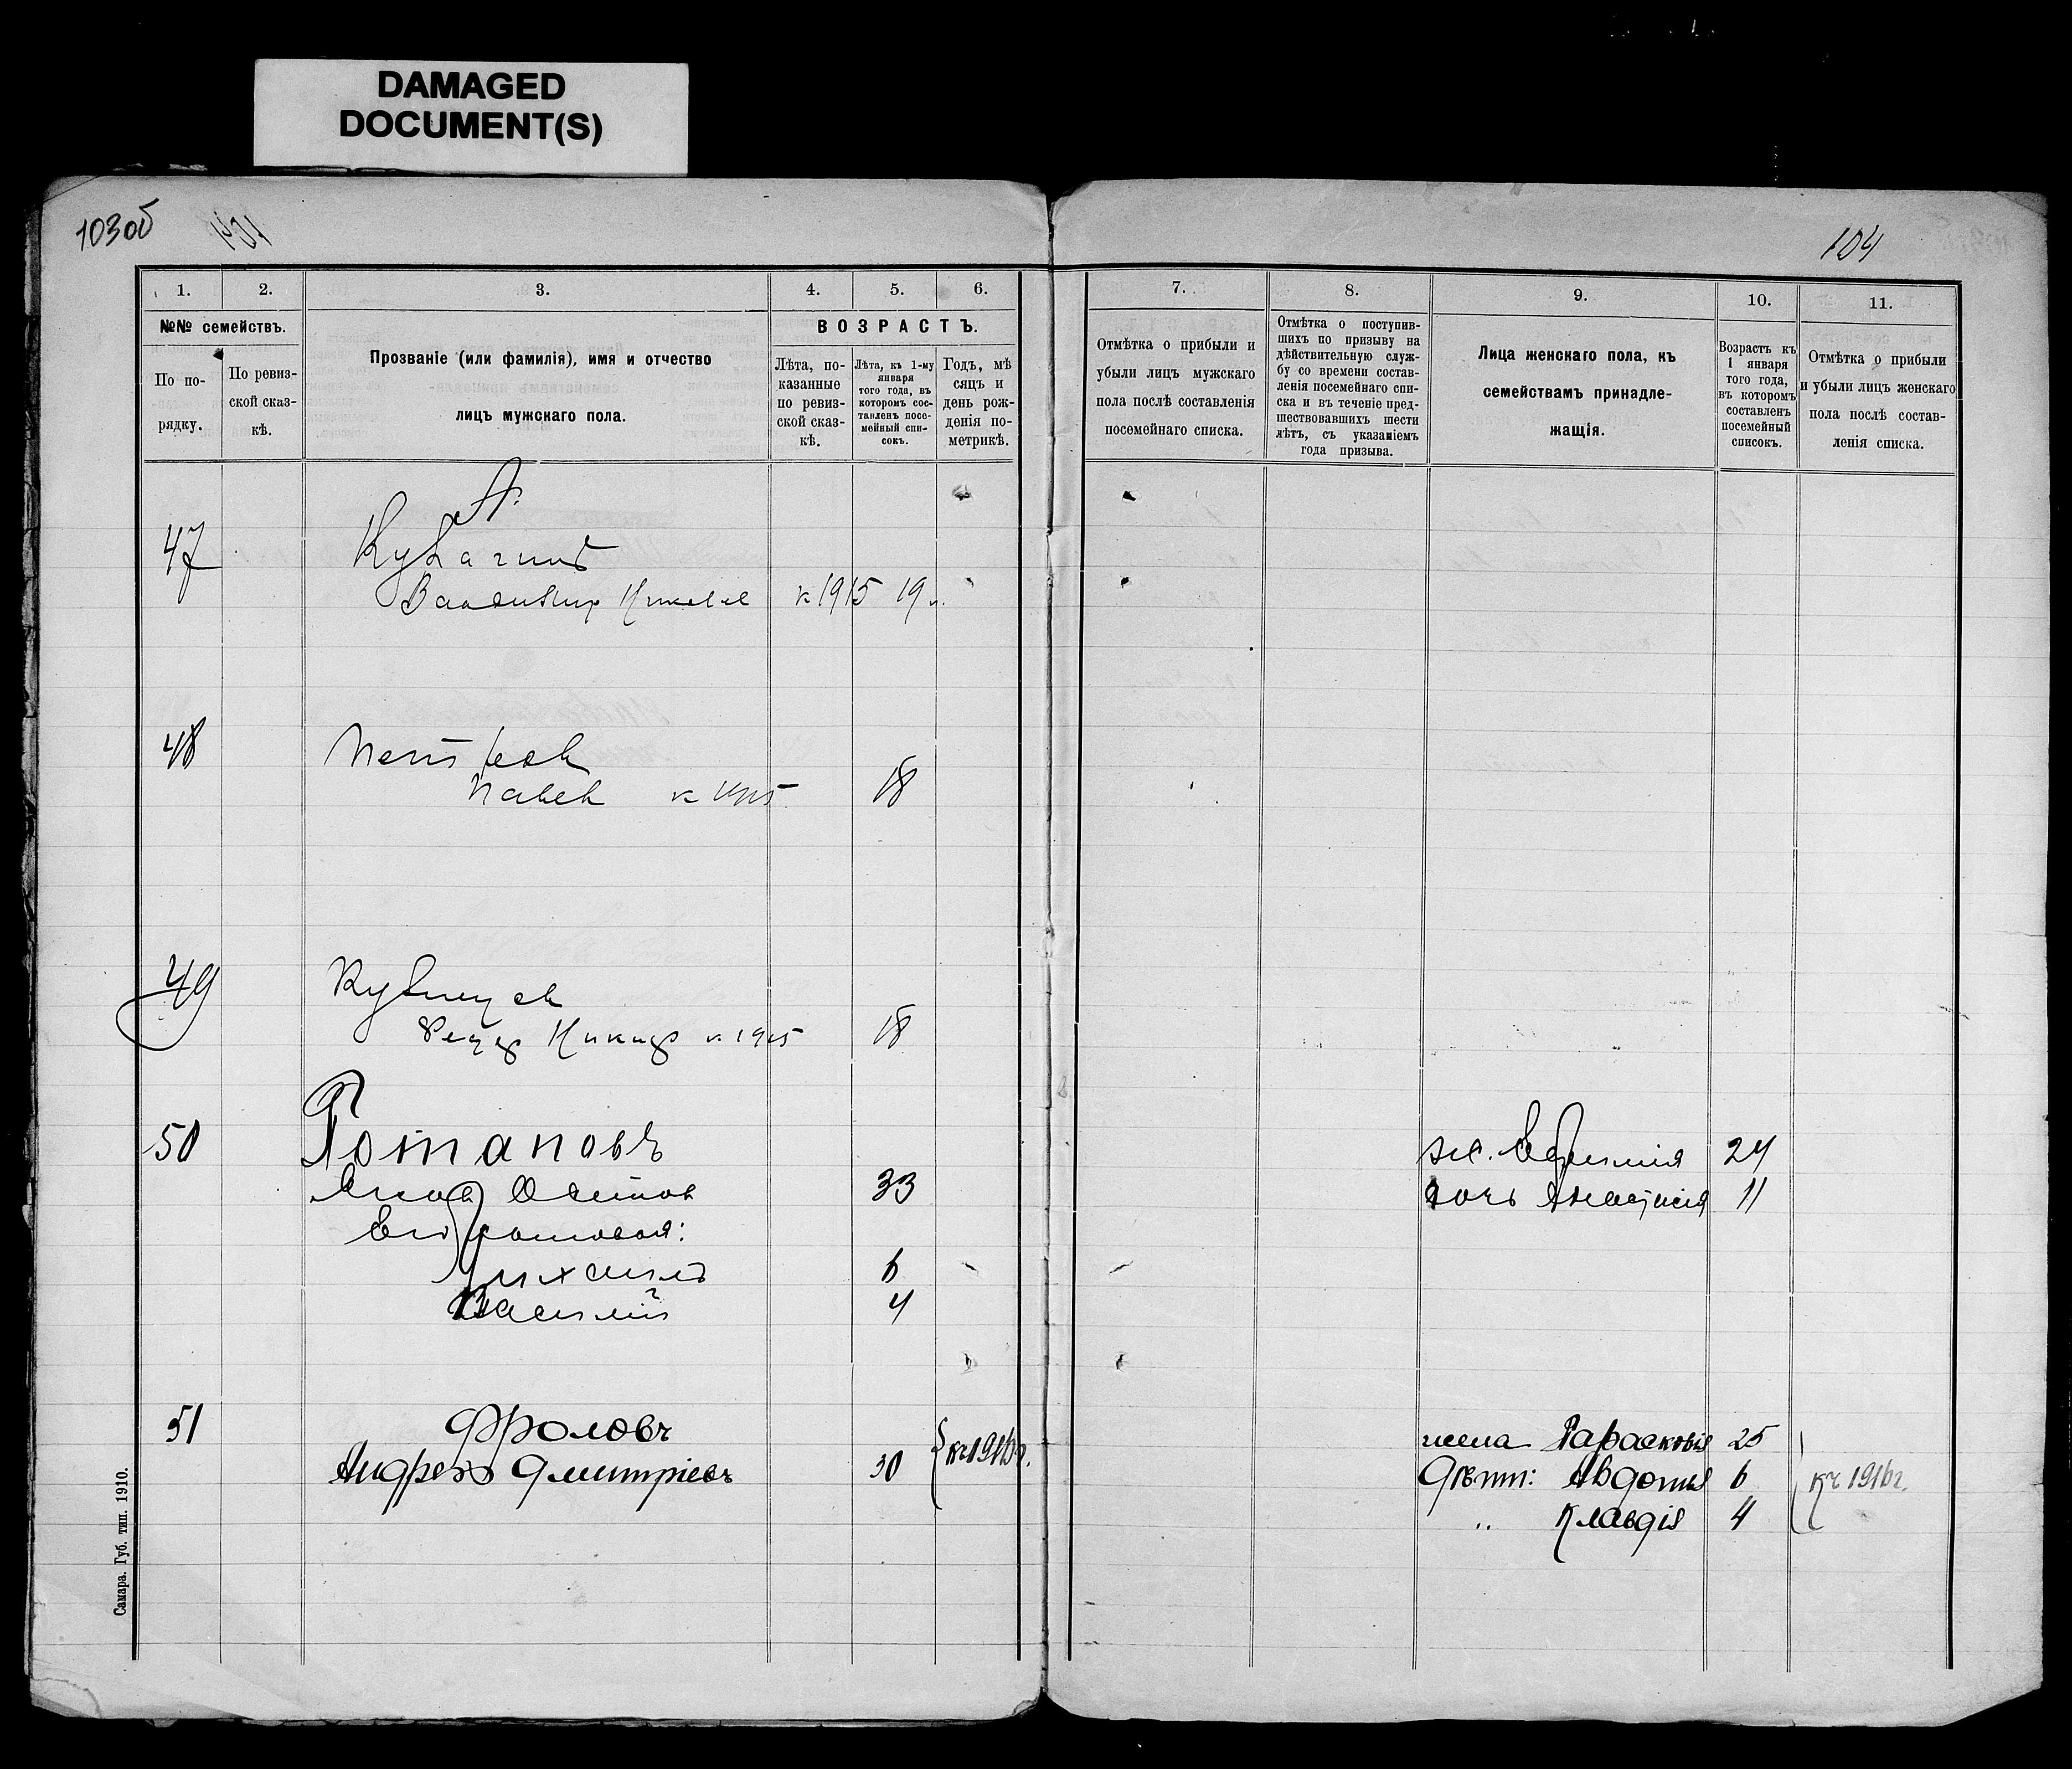 DAMAGED
DOCUMENT(S)
103об
104
1. 2. 3. 4. 5. 6.
№№ семействъ.
По по-
рядку.
По ревиз-
ской сказ-
кѣ.
Прозваніе (или фамилія), имя и отчество
лицъ мужскаго пола.
ВОЗРАСТЪ.
Лѣта, по-
казанные
по ревиз-
ской сказ-
кѣ.
Лѣта, къ 1-му
января
того года, въ
которомъ сос-
тавленъ посе-
мейный спи-
сокъ.
Годъ, мѣ
сяцъ и
день рож-
денія по-
метрикѣ.
47
к 1915 19
48
Павел к 1915 18
49
к 1915 18
50 Потаповъ
33
Его сыновья:
Михаилъ 6
Василій 4
51 Фроловъ
Андрей Дмитріевъ 30 къ 1916 г.
Самара. Губ. тип. 1910.
7. 8. 9. 10. 11.
Отмѣтка о прибыли и
убыли лицъ мужскаго
пола послѣ составленія
посемейнаго списка.
Отмѣтка о поступив-
шихъ по призыву на
дѣйствительную служ-
бу со времени состав-
ленія посемейнаго спи-
ска и въ теченіе пред-
шествовавшихъ шести
лѣтъ, съ указаніемъ
года призыва.
Лица женскаго пола, къ
семействамъ принадле-
жащія.
Возрастъ къ
1 января
того года,
въ которомъ
составленъ
посемейный
списокъ.
Отмѣтка о прибыли
и убыли лицъ женскаго
пола послѣ состав-
ленія списка.
ж. Ефимія 24
дочь Анастасія 11
жена Парасковія 25
Дѣти: Авдотья 6 къ 1916 г.
„ Клавдія 4